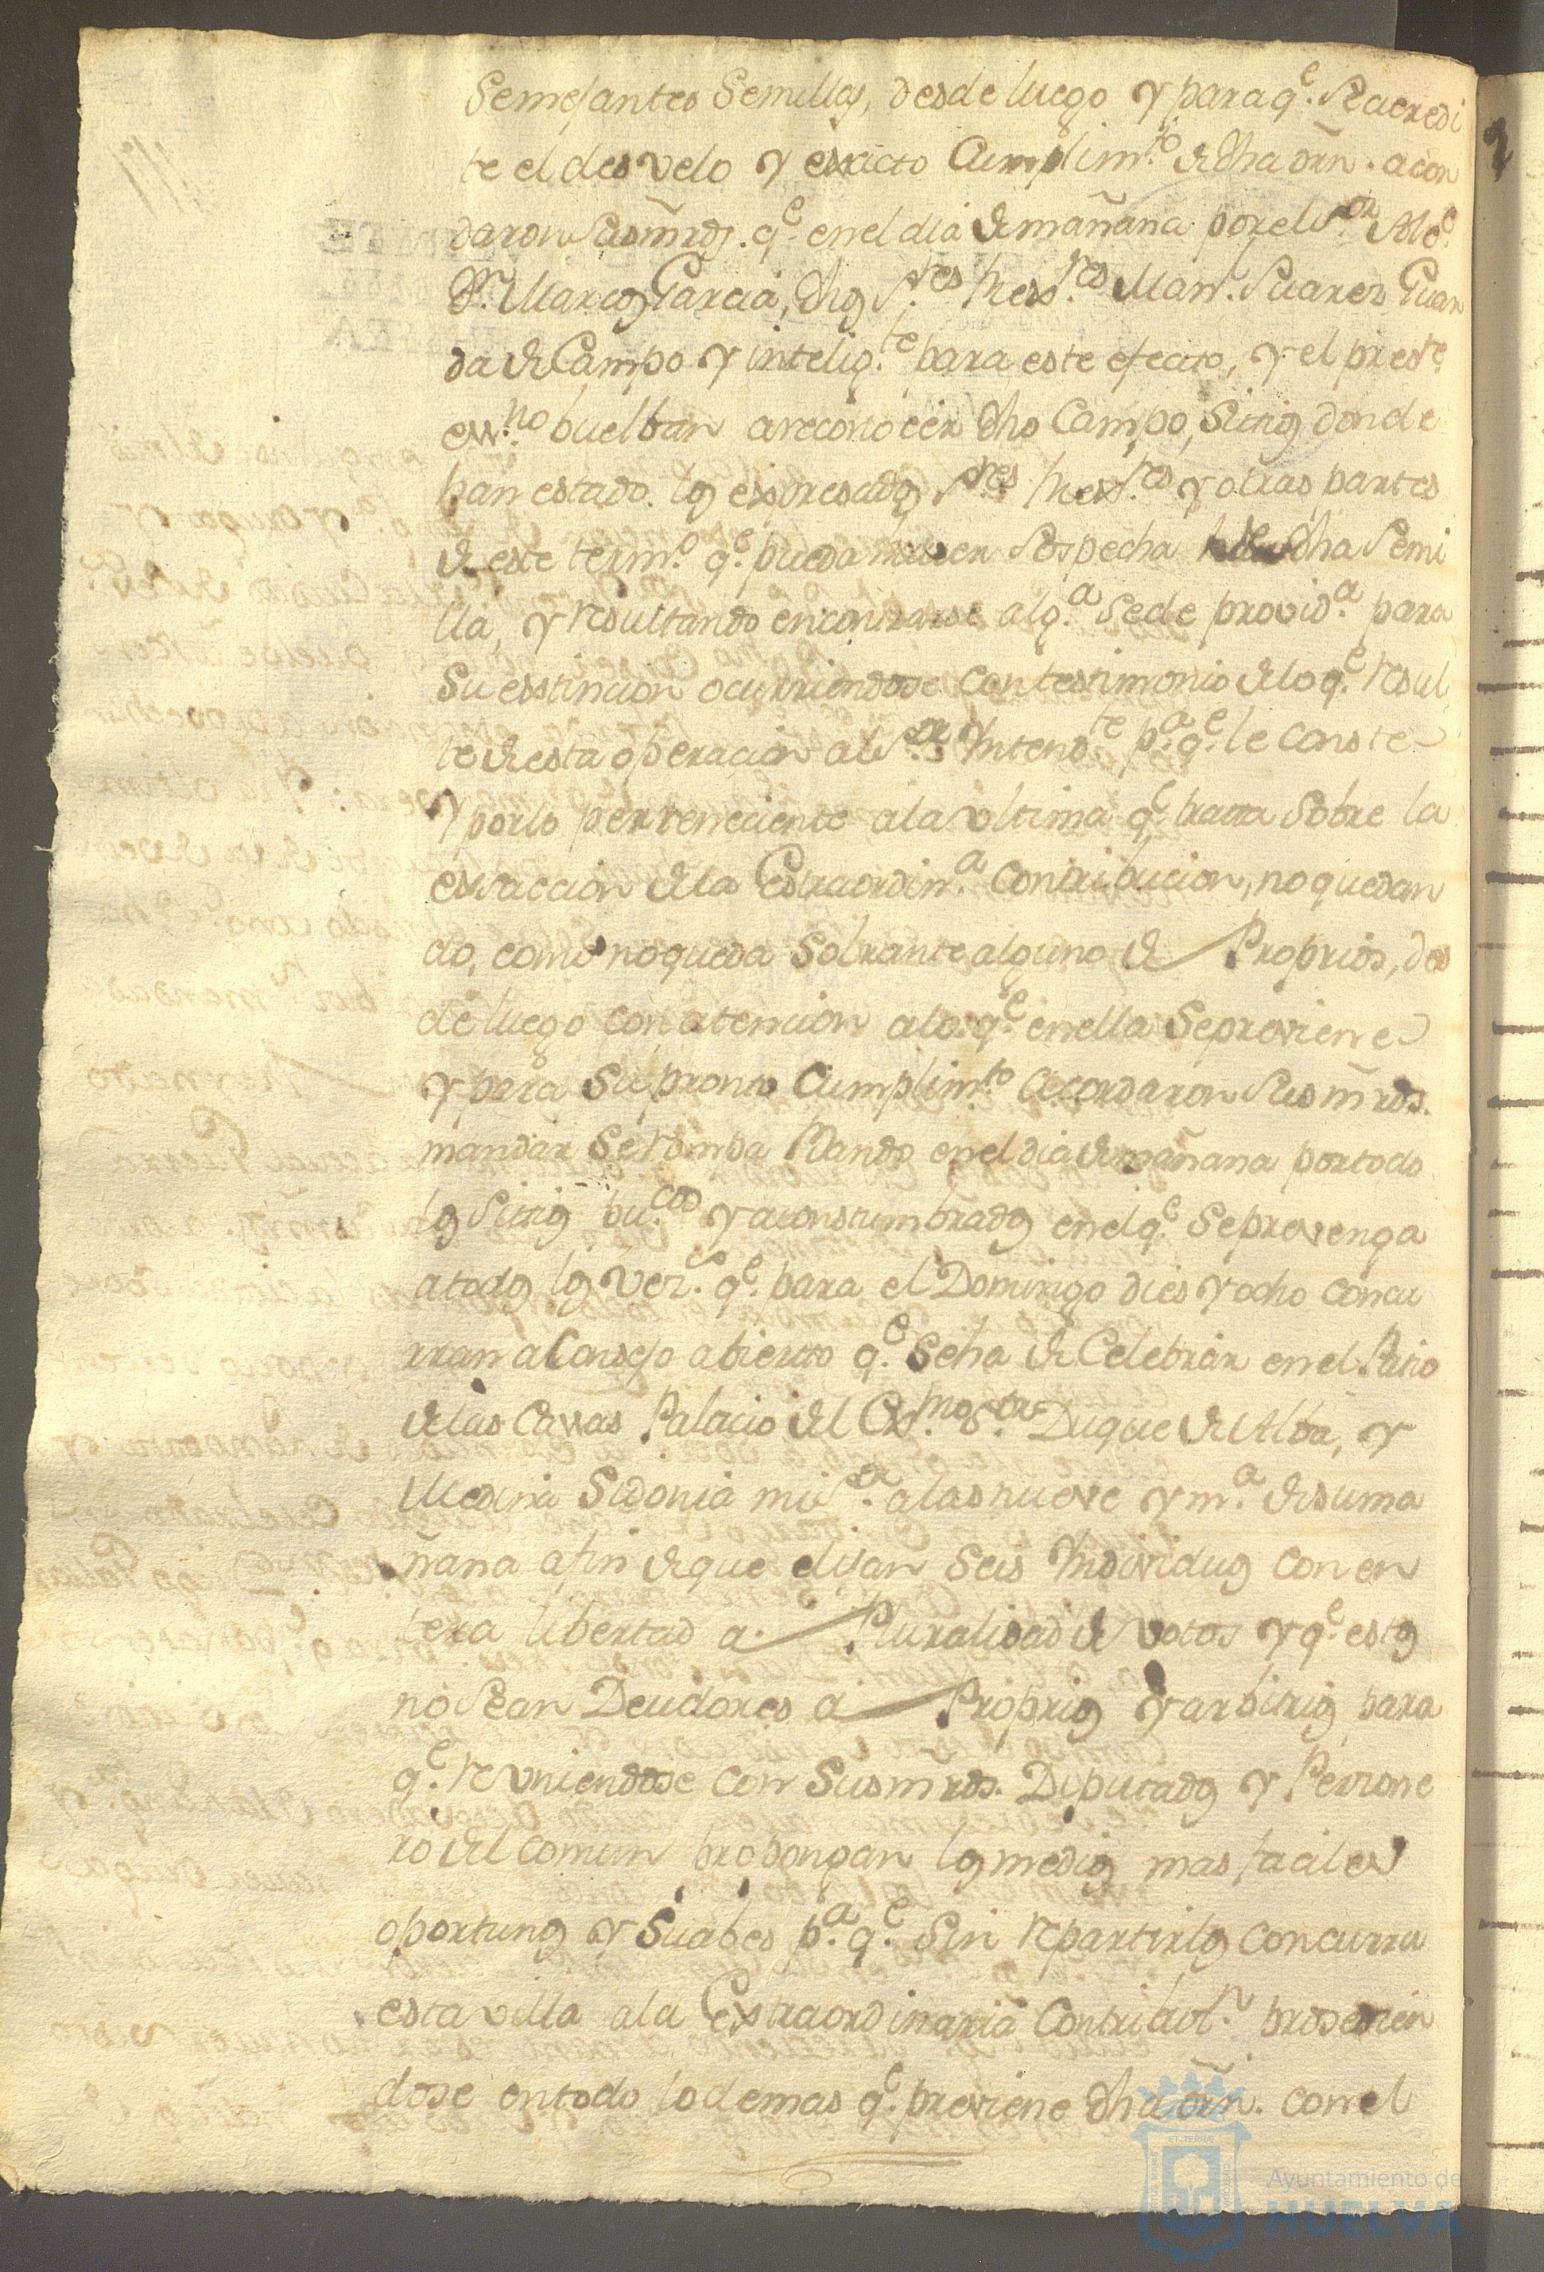 Semejantes Semillas, desde luego y para q.e Se acredi
te el desvelo y exsacto Cumplim.to de dha orñ. acor
daron Sus mrds. q.e en el dia de mañana por el S.or Alc.e
D.n Marcos Garcia, dhos S.res Man.l Suarez Guar
da de Campo y intelig.te para este efecto, y el pres.te
ess.no buelban a reconocer dho Campo, Sitios donde
han estado los exspresados S.res y otras partes
de este term.o q.e pueda haver Sospecha dha Semi
lla, y resultando encontrarse alg.a Se de provid.a para
Su esstincion ocurriendose con testimonio de lo q.e resul
te de esta operacion al S.or Intend.te p.a q.e le conste
Y por lo perteneciente a la ultima q.e trata Sobre la
essaccion de la Estraordin.a Contribucion, no quedan
do, como no queda Sobrante alguno de Proprios, des
de luego con atencion a lo q.e en ella Se previene
y para Su pronto Cumplim.to acordaron Sus mrds.
mandar Se rompa Bando en el dia de mañana por todo
los Sitios pu.cos y aconstumbrados en el q.e Se prevenga
a todos los vez.os q.e para el Domingo dies y ocho concu
rran a Consejo abierto q.e Se ha de Celebrar en el Patio
de las Cassas Palacio del Ex.mo S.or Duque de Alba, y
Medina Sidonia mi S.or a las nueve y m.a de su ma
ñana a fin de que elijan Seis Individuos con en
tera libertad a Pluralidad de votos y q.e estos
no Sean Deudores a Proprios y arbitrios para
q.e reuniendose con Sus mrds. Diputados y Perssone
ro del comun propongan los medios mas faciles
oportunos y Suabes p.a q.e Sin repartirlos concurra
esta villa a la Exstraordinaria Contribu.n procedien
dose en todo lo demas q.e previene dha orñ. con el
Ayuntamiento de
HUELVA